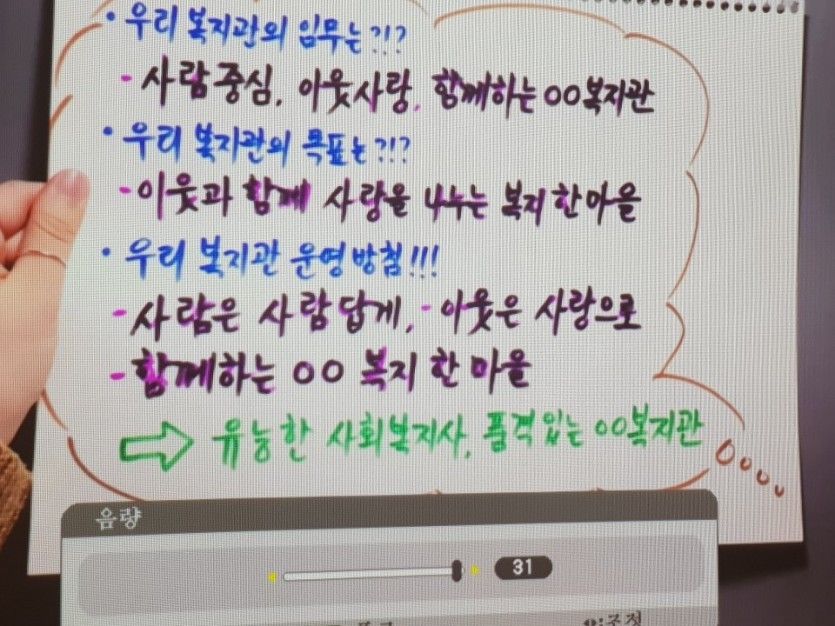 • 우리 복지관의 임무는?!?
- 사람중심, 이웃사랑, 함께하는 OO복지관
• 우리 복지관의 목표는?!?
- 이웃과 함께 사랑을 나누는 복지 한마을
• 우리 복지관 운영방침!!!
- 사람은 사람답게, - 이웃은 사랑으로
- 함께하는 OO 복지 한 마을
⇨ 유능한 사회복지사, 품격있는 OO복지관
음량
31